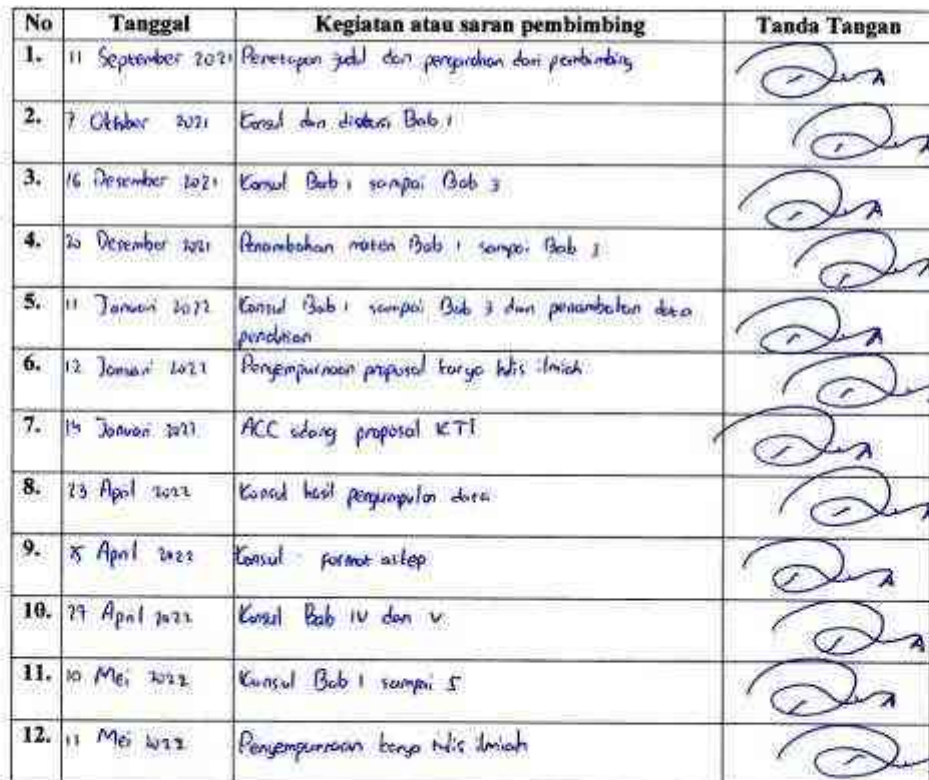 No Tanggal Kegiatan atau saran pembimbing Tanda Tangan
1. 11 September 2021 Penetapan judul dan pengarahan dari pembimbing
2. 7 Oktober 2021 Konsul dan diskusi Bab 1
3. 16 Desember 2021 Konsul Bab 1 sampai Bab 3
4. 20 Desember 2021 Penambahan materi Bab 1 sampai Bab 3
5. 11 Januari 2022 Konsul Bab 1 sampai Bab 3 dan penambahan data
penelitian
6. 12 Januari 2022 Penyempurnaan proposal karya tulis ilmiah
7. 14 Januari 2022 ACC sidang proposal KTI
8. 23 April 2022 Konsul hasil pengumpulan data
9. April 2022 Konsul format askep
10. 29 April 2022 Konsul Bab IV dan V
11. 10 Mei 2022 Konsul Bab 1 sampai 5
12. 11 Mei 2022 Penyempurnaan karya tulis ilmiah